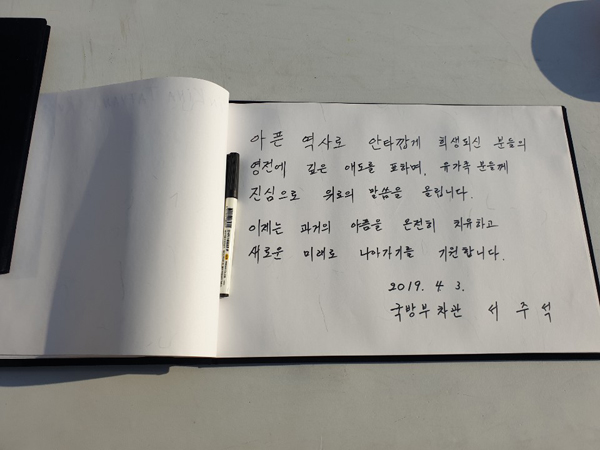 아픈 역사로 안타깝게 희생되신 분들의
영전에 깊은 애도를 표하며, 유가족 분들께
진심으로 위로의 말씀을 올립니다.
이제는 과거의 아픔을 온전히 치유하고
새로운 미래로 나아가기를 기원합니다.
2019. 4 3.
국방부차관 서 주 석